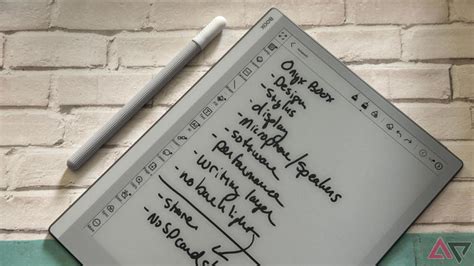 BOOX
Onyx Boox
-Design
-stylus
-display
-microphone/speakers
-software
performance
-writing layer
-no backlight
-store
-No SD card